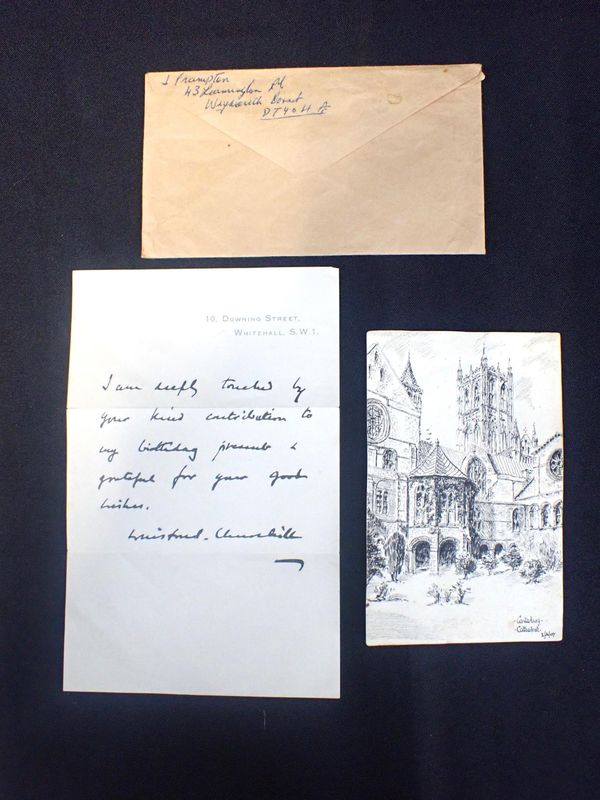 J Frampton
43 Leamington Rd
Weymouth Dorset
DT4 0HA
10, Downing Street,
Whitehall, S.W.1.
I am deeply touched by
your kind contribution to
my birthday present &
grateful for your good
wishes.
Winston S. Churchill
Canterbury
Cathedral